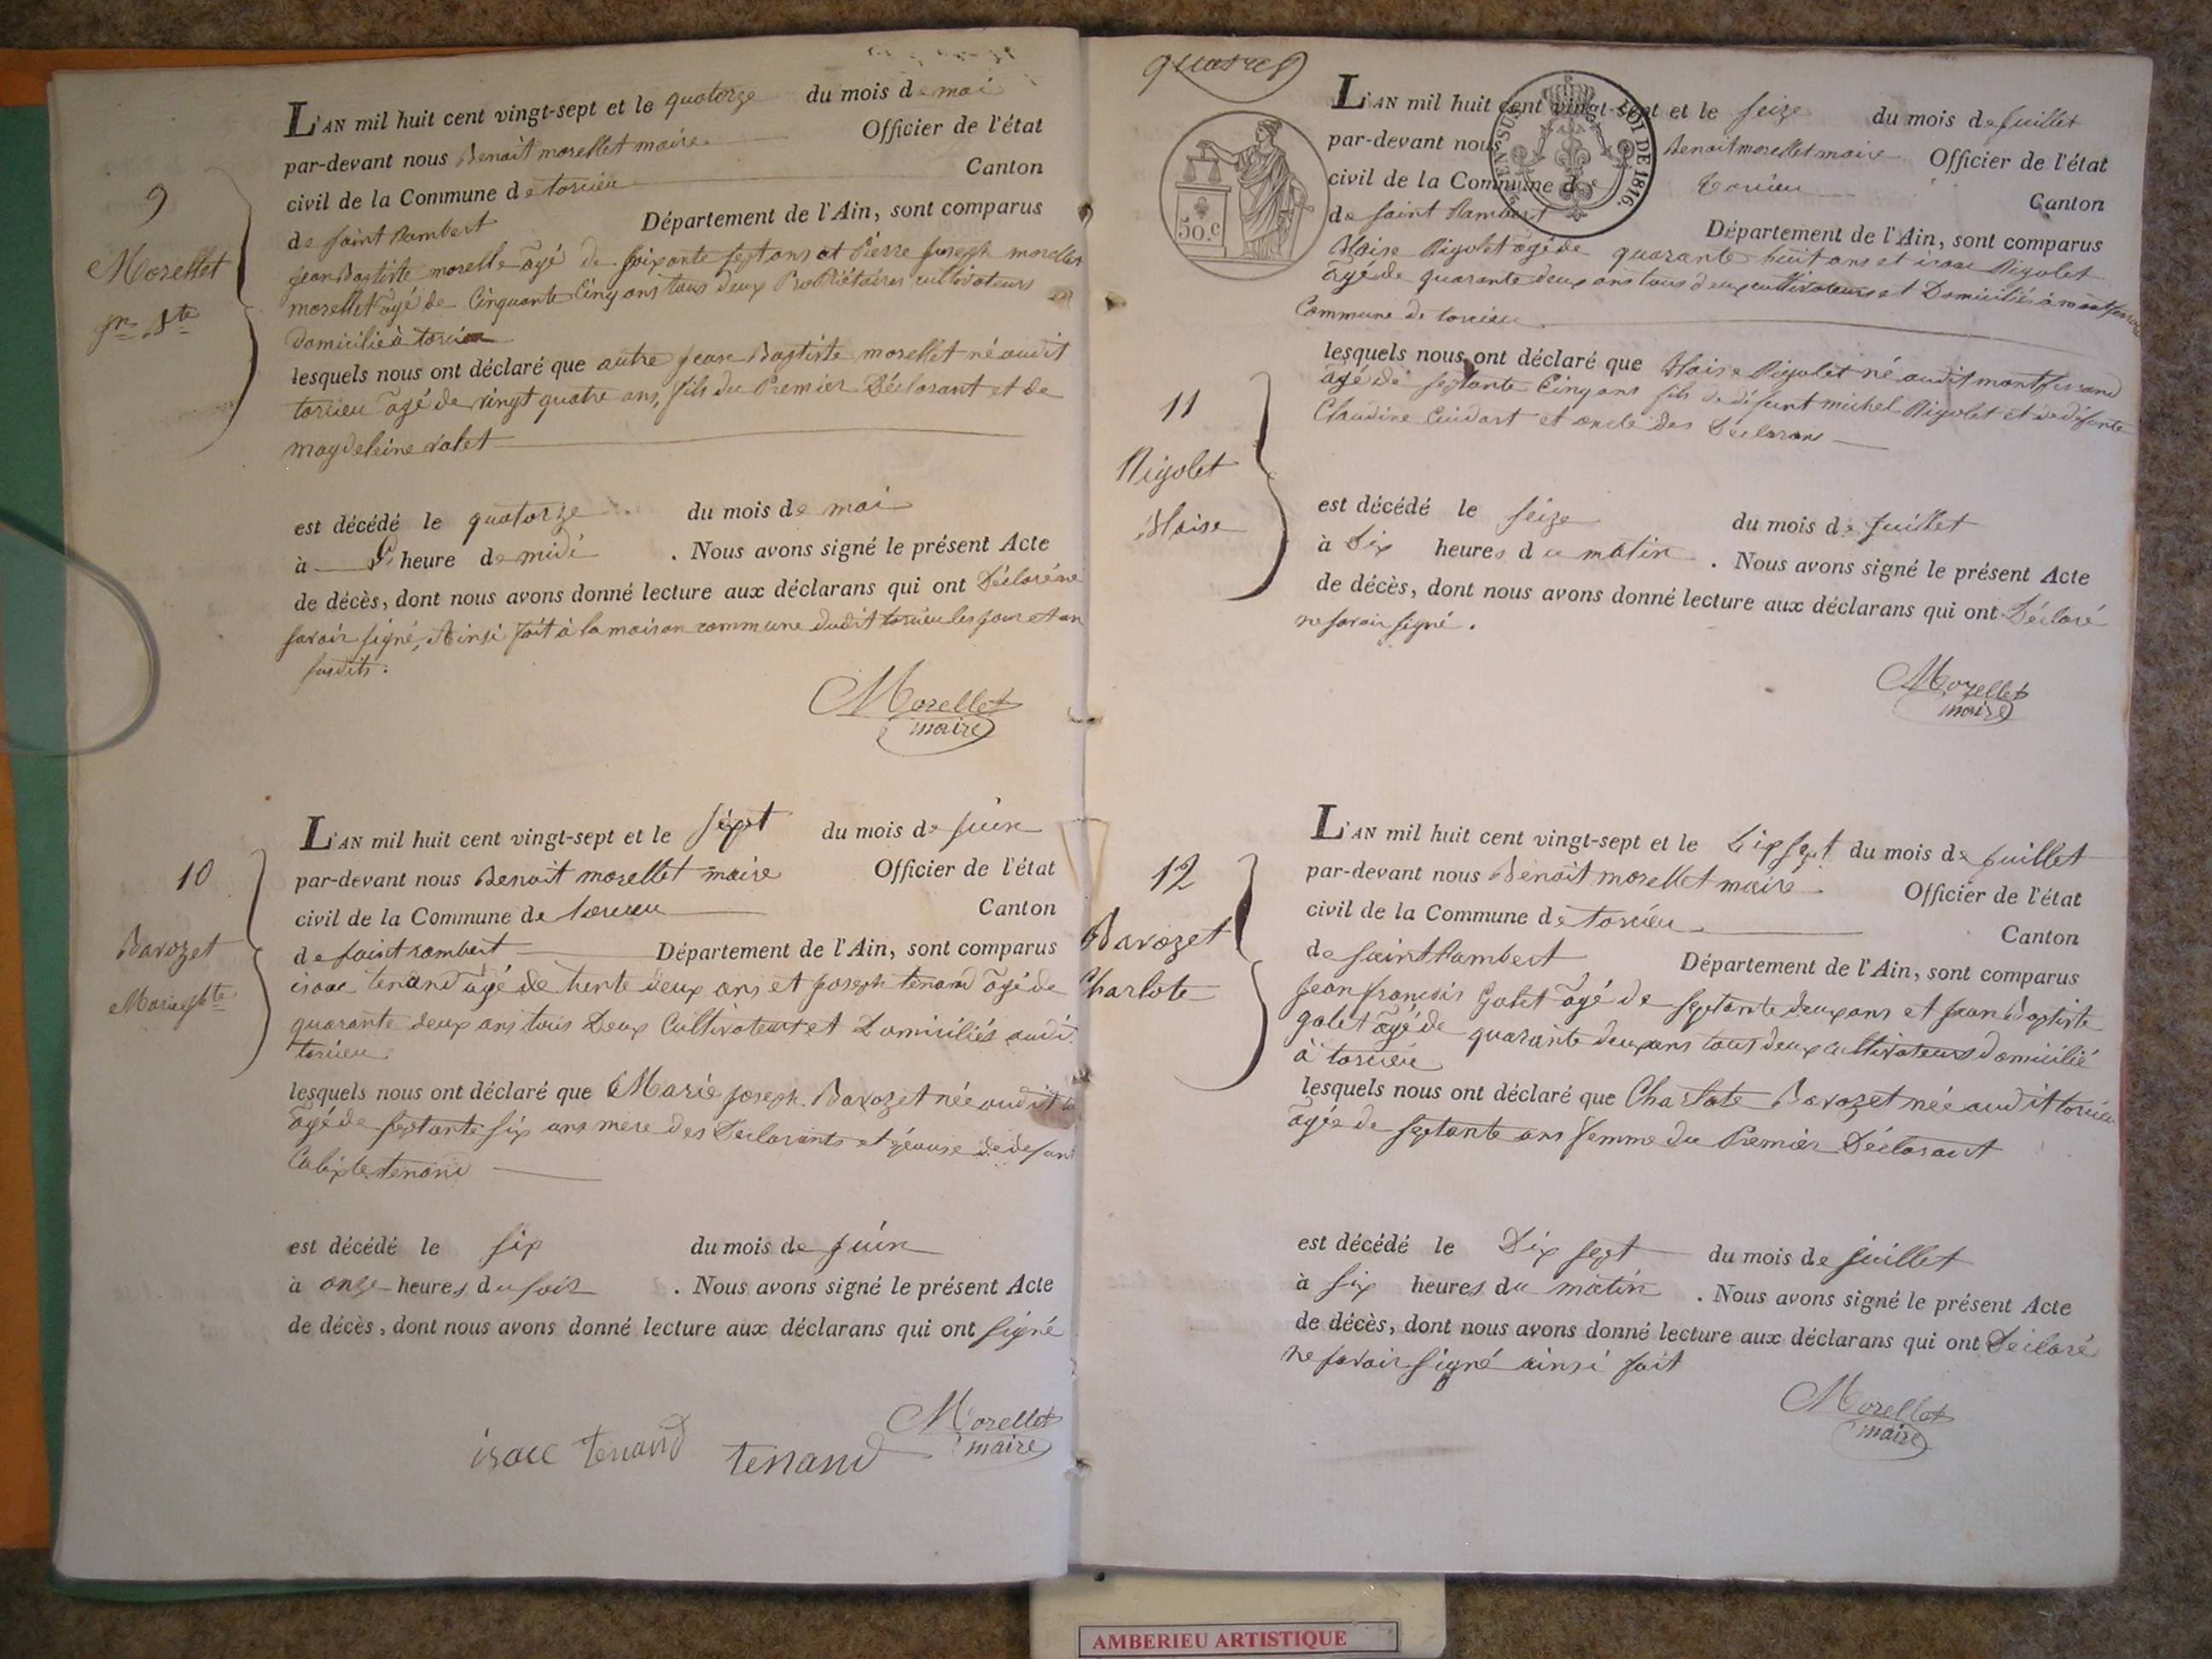 L'AN mil huit cent vingt-sept et le quatorze du mois de mai
par-devant nous Benoit morellet maire Officier de l'état
civil de la Commune de torcieu Canton
de saint Rambert Département de l'Ain, sont comparus
Jean Baptiste morelle agé de soixante sept ans et Pierre Joseph morellet
morellet agé de Cinquante Cinq ans tous deux Propriétaires cultivateurs
domicilié à torcieu
lesquels nous ont déclaré que autre Jean Baptiste morellet né audit
torcieu agé de vingt quatre ans, fils du Premier Déclarant et de
magdeleine valet
9
Morellet
jn Bte
est décédé le quatorze du mois de mai
à heure de midi . Nous avons signé le présent Acte
de décès, dont nous avons donné lecture aux déclarans qui ont Déclaré ne
savoir signé, Ainsi fait à la maison commune dudit torcieu les jour et an
susdits.
Morellet
maire
L'AN mil huit cent vingt-sept et le sept du mois de juin
par-devant nous Benoit morellet maire Officier de l'état
civil de la Commune de torcieu Canton
de saint rambert Département de l'Ain, sont comparus
isaac tenand agé de trente deux ans et joseph tenand agé de
quarante deux ans tous Deux Cultivateurs et Domiciliés audit
torcieu
10
Bavozet
Marie jph te
lesquels nous ont déclaré que Marie joseph Bavozet née audit
agé de septante six ans mere des Déclarants et épouse de defunt
Calixte tenand
est décédé le six du mois de juin
à onze heures du soir . Nous avons signé le présent Acte
de décès, dont nous avons donné lecture aux déclarans qui ont signé
isaac tenand tenand Morellet
maire
quatre
L'AN mil huit cent vingt-sept et le seize du mois de juillet
par-devant nous Benoit morellet maire Officier de l'état
civil de la Commune de torcieu Canton
de saint Rambert Département de l'Ain, sont comparus
50.c
EN SUS
LOI DE 1816.
Blaise Rigolet agé de quarante huit ans et isaac Rigolet
agé de quarante deux ans tous deux cultivateurs et Domiciliés à montferrand
Commune de torcieu
lesquels nous ont déclaré que Blaise Rigolet né audit montferrand
agé de septante Cinq ans fils de défunt michel Rigolet et de défunte
Claudine et oncle des Déclarans
11
Rigolet
Blaise
est décédé le seize du mois de juillet
à Six heures du matin . Nous avons signé le présent Acte
de décès, dont nous avons donné lecture aux déclarans qui ont Déclaré
ne savoir signé.
Morellet
maire
L'AN mil huit cent vingt-sept et le Dix sept du mois de juillet
par-devant nous Benoit morellet maire Officier de l'état
civil de la Commune de torcieu Canton
de saint Rambert Département de l'Ain, sont comparus
12
Bavozet
Charlote
Jean françois Galet agé de septante deux ans et jean baptiste
galet agé de quarante deux ans tous deux cultivateurs domicilié
à torcieu
lesquels nous ont déclaré que Charlote Bavozet née audit torcieu
agée de septante ans femme du Premier Déclarant
est décédé le Dix sept du mois de juillet
à six heures du matin . Nous avons signé le présent Acte
de décès, dont nous avons donné lecture aux déclarans qui ont Déclaré
ne savoir signé ainsi fait
Morellet
maire
AMBERIEU ARTISTIQUE